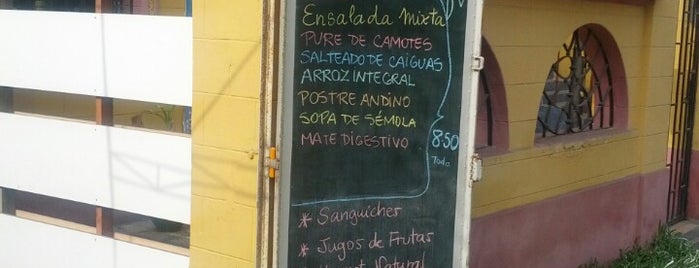 Ensalada Mixta
PURE DE CAMOTES
SALTEADO DE CAIGUAS
ARROZ INTEGRAL
POSTRE ANDINO
SOPA DE SÉMOLA
MATE DIGESTIVO 8.50
Todo
* Sanguiches
* Jugos de Frutas
Natural